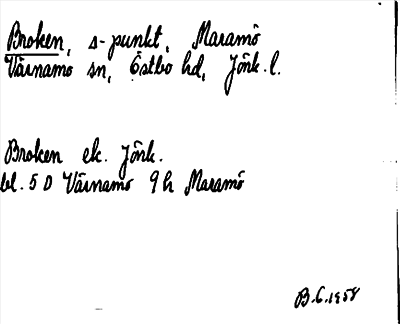 Broken, s-punkt, Maramö
Värnamo sn, Östbo hd, Jönk. l.
Broken ek. Jönk.
bl. 5 D Värnamo 9 h Maramö
B.G. 1958